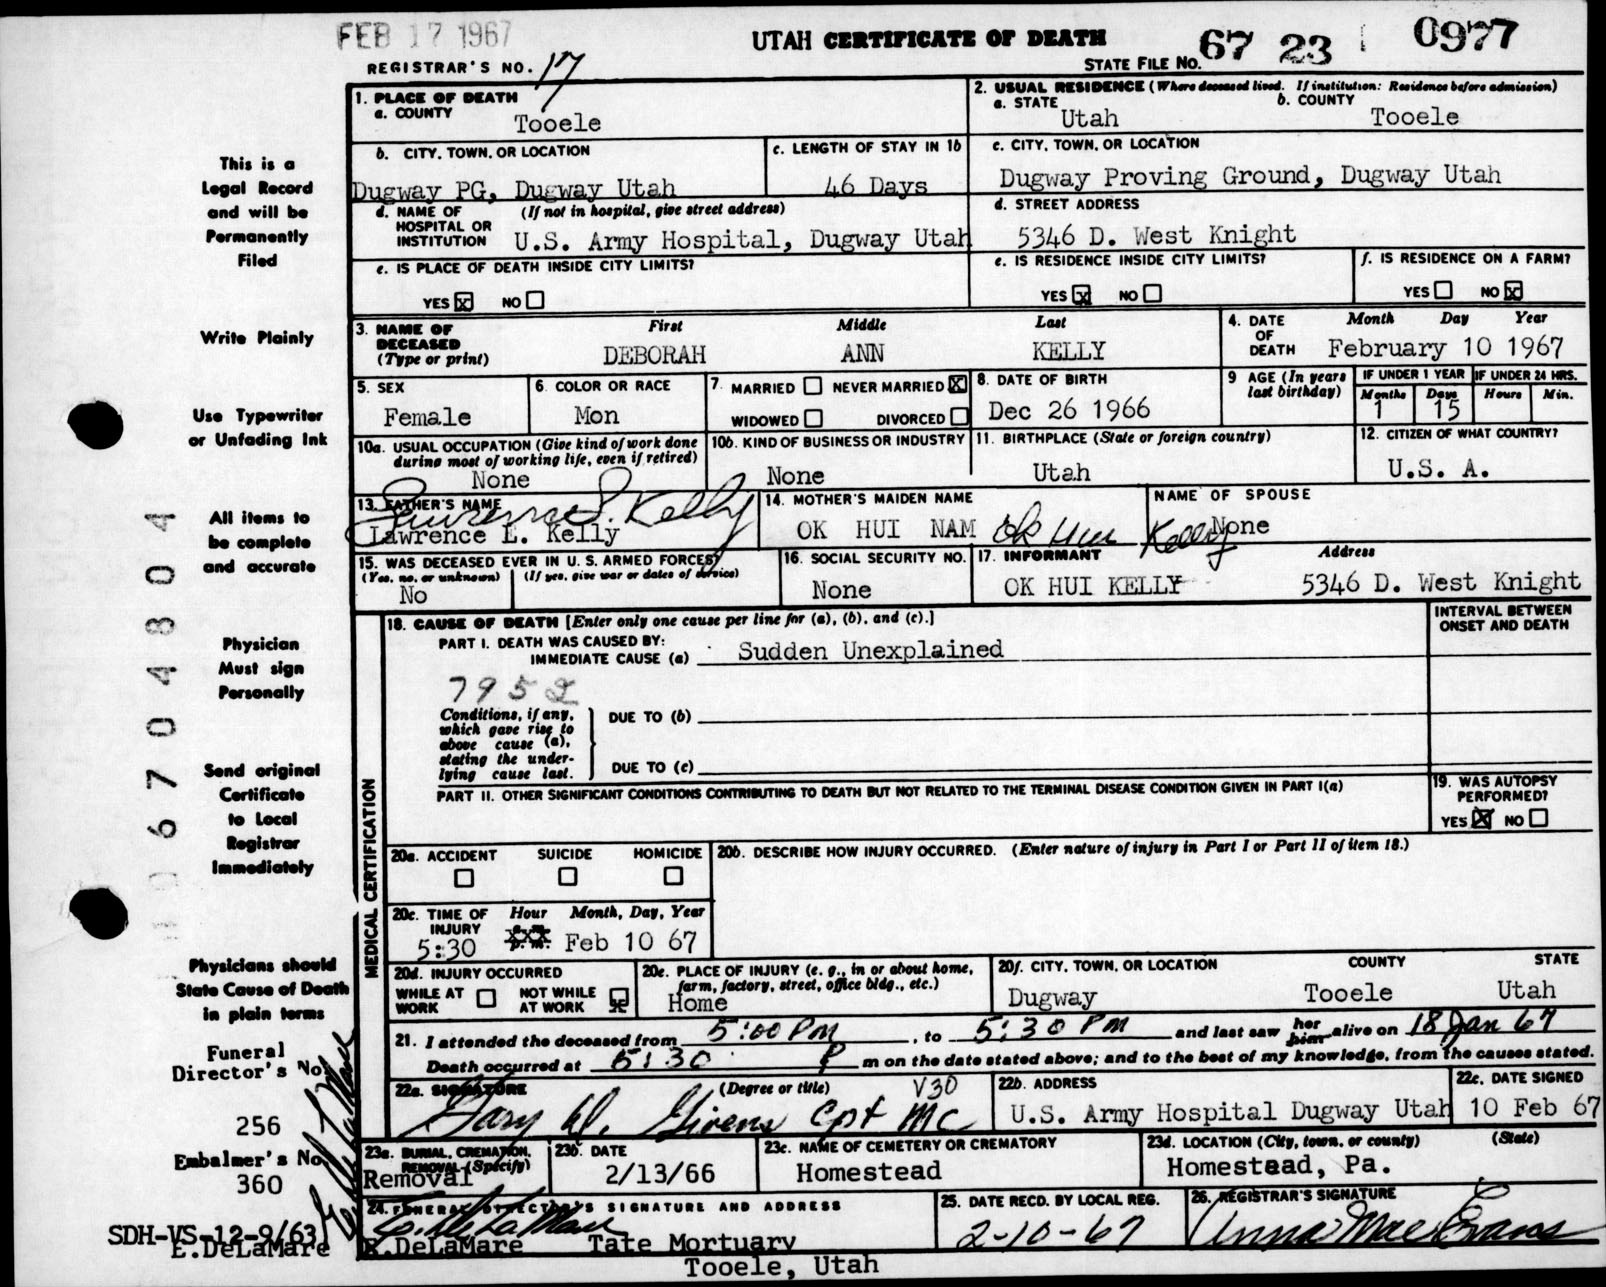 FEB 17 1967
UTAH CERTIFICATE OF DEATH
REGISTRAR'S NO. 17
STATE FILE NO. 67 23 0977
This is a
Legal Record
and will be
Permanently
Filed
Write Plainly
Use Typewriter
or Unfading Ink
All items to
be complete
and accurate
Physician
Must sign
Personally
Send original
Certificate
to Local
Registrar
Immediately
Physicians should
State Cause of Death
in plain terms
Funeral
Director's No.
256
Embalmer's No.
360
SDH-VS-12-9/63
E.DeLaMare
670 48 04
1. PLACE OF DEATH
a. COUNTY
Tooele
2. USUAL RESIDENCE (Where deceased lived. If institution: Residence before admission)
a. STATE
Utah
b. COUNTY
Tooele
b. CITY, TOWN, OR LOCATION
Dugway PG, Dugway Utah
c. LENGTH OF STAY IN 1b
46 Days
c. CITY, TOWN, OR LOCATION
Dugway Proving Ground, Dugway Utah
d. NAME OF HOSPITAL OR INSTITUTION
(If not in hospital, give street address)
U.S. Army Hospital, Dugway Utah
d. STREET ADDRESS
5346 D. West Knight
e. IS PLACE OF DEATH INSIDE CITY LIMITS?
YES X NO
e. IS RESIDENCE INSIDE CITY LIMITS?
YES X NO
f. IS RESIDENCE ON A FARM?
YES NO X
3. NAME OF DECEASED (Type or print)
First Middle Last
DEBORAH ANN KELLY
4. DATE OF DEATH
Month Day Year
February 10 1967
5. SEX
Female
6. COLOR OR RACE
Mon
7. MARRIED NEVER MARRIED X
WIDOWED DIVORCED
8. DATE OF BIRTH
Dec 26 1966
9 AGE (In years last birthday)
IF UNDER 1 YEAR IF UNDER 24 HRS.
Months Days Hours Min.
1 15
10a. USUAL OCCUPATION (Give kind of work done during most of working life, even if retired)
None
10b. KIND OF BUSINESS OR INDUSTRY
None
11. BIRTHPLACE (State or foreign country)
Utah
12. CITIZEN OF WHAT COUNTRY?
U.S. A.
13. FATHER'S NAME
Lawrence L. Kelly
14. MOTHER'S MAIDEN NAME
OK HUI NAM
Ok Hui Kelly
NAME OF SPOUSE
None
15. WAS DECEASED EVER IN U. S. ARMED FORCES?
(Yes, no, or unknown) (If yes, give war or dates of service)
No
16. SOCIAL SECURITY NO.
None
17. INFORMANT Address
OK HUI KELLY 5346 D. West Knight
MEDICAL CERTIFICATION
18. CAUSE OF DEATH [Enter only one cause per line for (a), (b), and (c).]
INTERVAL BETWEEN ONSET AND DEATH
PART I. DEATH WAS CAUSED BY:
IMMEDIATE CAUSE (a) Sudden Unexplained
7952
Conditions, if any, which gave rise to above cause (a), stating the underlying cause last.
DUE TO (b)
DUE TO (c)
PART II. OTHER SIGNIFICANT CONDITIONS CONTRIBUTING TO DEATH BUT NOT RELATED TO THE TERMINAL DISEASE CONDITION GIVEN IN PART I(a)
19. WAS AUTOPSY PERFORMED?
YES X NO
20a. ACCIDENT SUICIDE HOMICIDE
20b. DESCRIBE HOW INJURY OCCURRED. (Enter nature of injury in Part I or Part II of item 18.)
20c. TIME OF INJURY
Hour Month, Day, Year
5:30 p.m. Feb 10 67
20d. INJURY OCCURRED
WHILE AT WORK NOT WHILE AT WORK X
20e. PLACE OF INJURY (e. g., in or about home, farm, factory, street, office bldg., etc.)
Home
20f. CITY, TOWN, OR LOCATION COUNTY STATE
Dugway Tooele Utah
21. I attended the deceased from 5:00 PM, to 5:30 PM and last saw her him alive on 18 Jan 67
Death occurred at 5:30 P m on the date stated above; and to the best of my knowledge, from the causes stated.
22a. SIGNATURE (Degree or title) V30
Gary W. Givens Cpt MC
22b. ADDRESS
U.S. Army Hospital Dugway Utah
22c. DATE SIGNED
10 Feb 67
23a. BURIAL, CREMATION, REMOVAL (Specify)
Removal
23b. DATE
2/13/66
23c. NAME OF CEMETERY OR CREMATORY
Homestead
23d. LOCATION (City, town, or county) (State)
Homestead, Pa.
24. FUNERAL DIRECTOR'S SIGNATURE AND ADDRESS
E.DeLaMare Tate Mortuary
Tooele, Utah
25. DATE RECD. BY LOCAL REG.
2-10-67
26. REGISTRAR'S SIGNATURE
Anna Mae Evans